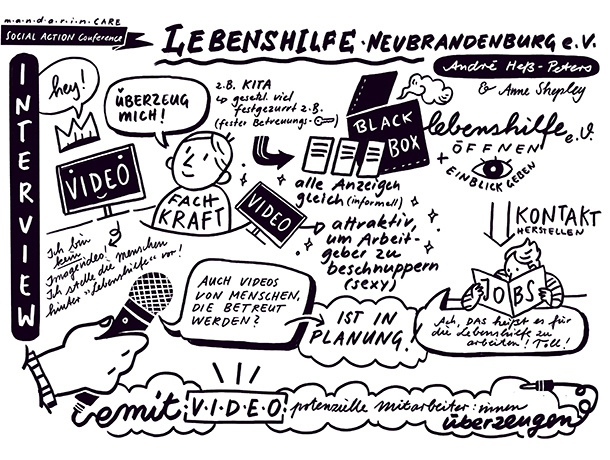 m·a·n·d·a·r·i·n·CARE
SOCIAL ACTION Conference
LEBENSHILFE · NEUBRANDENBURG e.V.
André Heß-Peters
& Anne Shepley
INTERVIEW
hey!
ÜBERZEUG
MICH!
z.B. KITA
↳ gesetzl. viel
festgezurrt z.B.
(fester Betreuungs-
BLACK
BOX
lebenshilfe e.V.
ÖFFNEN
+ EINBLICK GEBEN
VIDEO
FACH-
KRAFT
VIDEO
alle Anzeigen
gleich (informell)
attraktiv,
um Arbeit-
geber zu
beschnuppern
(sexy)
KONTAKT
HERSTELLEN
Ich bin
kein
Imagevideo!
Ich stelle die Menschen
hinter "Lebenshilfe" vor!
AUCH VIDEOS
VON MENSCHEN,
DIE BETREUT
WERDEN?
IST IN
PLANUNG!
JOBS
Ach, DAS heißt es für
die Lebenshilfe zu
arbeiten! Toll!
mit V·I·D·E·O potenzielle Mitarbeiter:innen
überzeugen